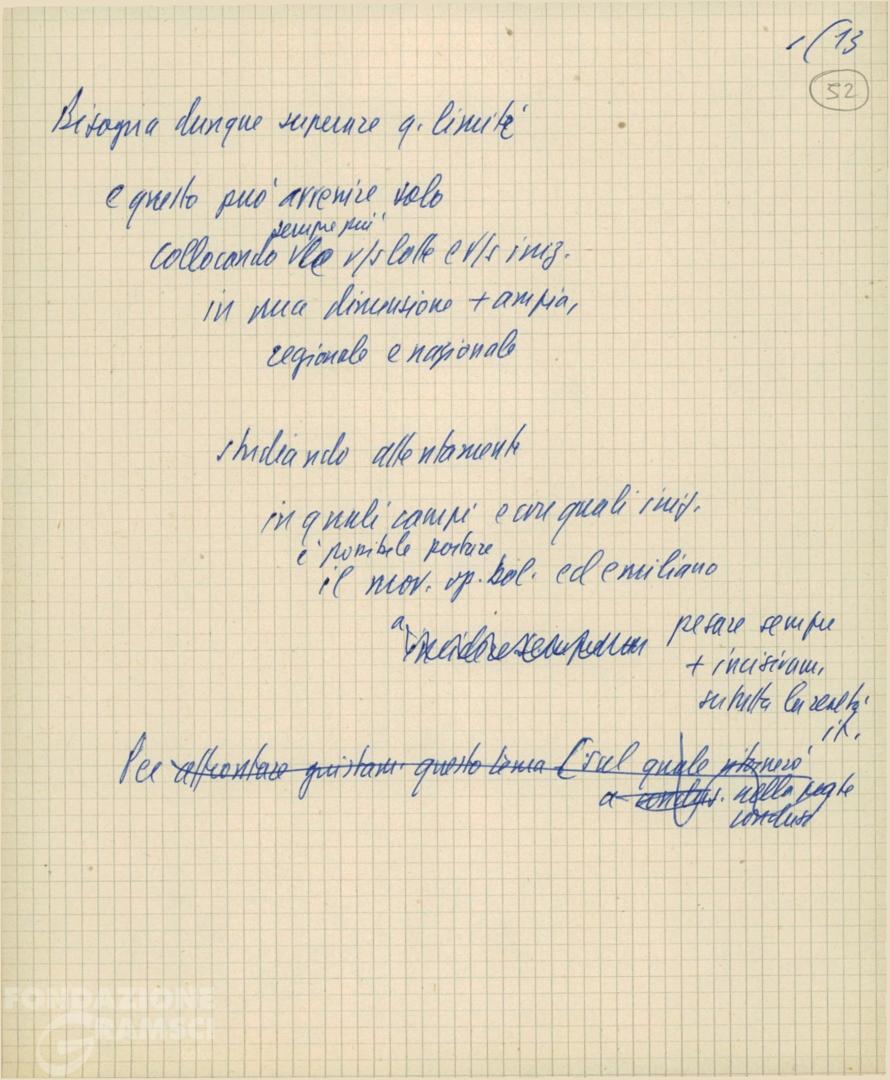 /(13
52
Bisogna dunque superare q. limiti
e questo può avvenire solo
sempre più
collocando le v/s lotte e v/s iniz.
in una dimensione + ampia,
regionale e nazionale
studiando attentamente
in quali campi e con quali iniz.
è possibile portare
il mov. op. bol. ed emiliano
a pesare sempre
+ incisivam.
su tutta la realtà
it.
Per affrontare giustam. questo tema (sul quale ritornerò
a conclus. nella parte
conclus
FONDAZIONE
GRAMSCI